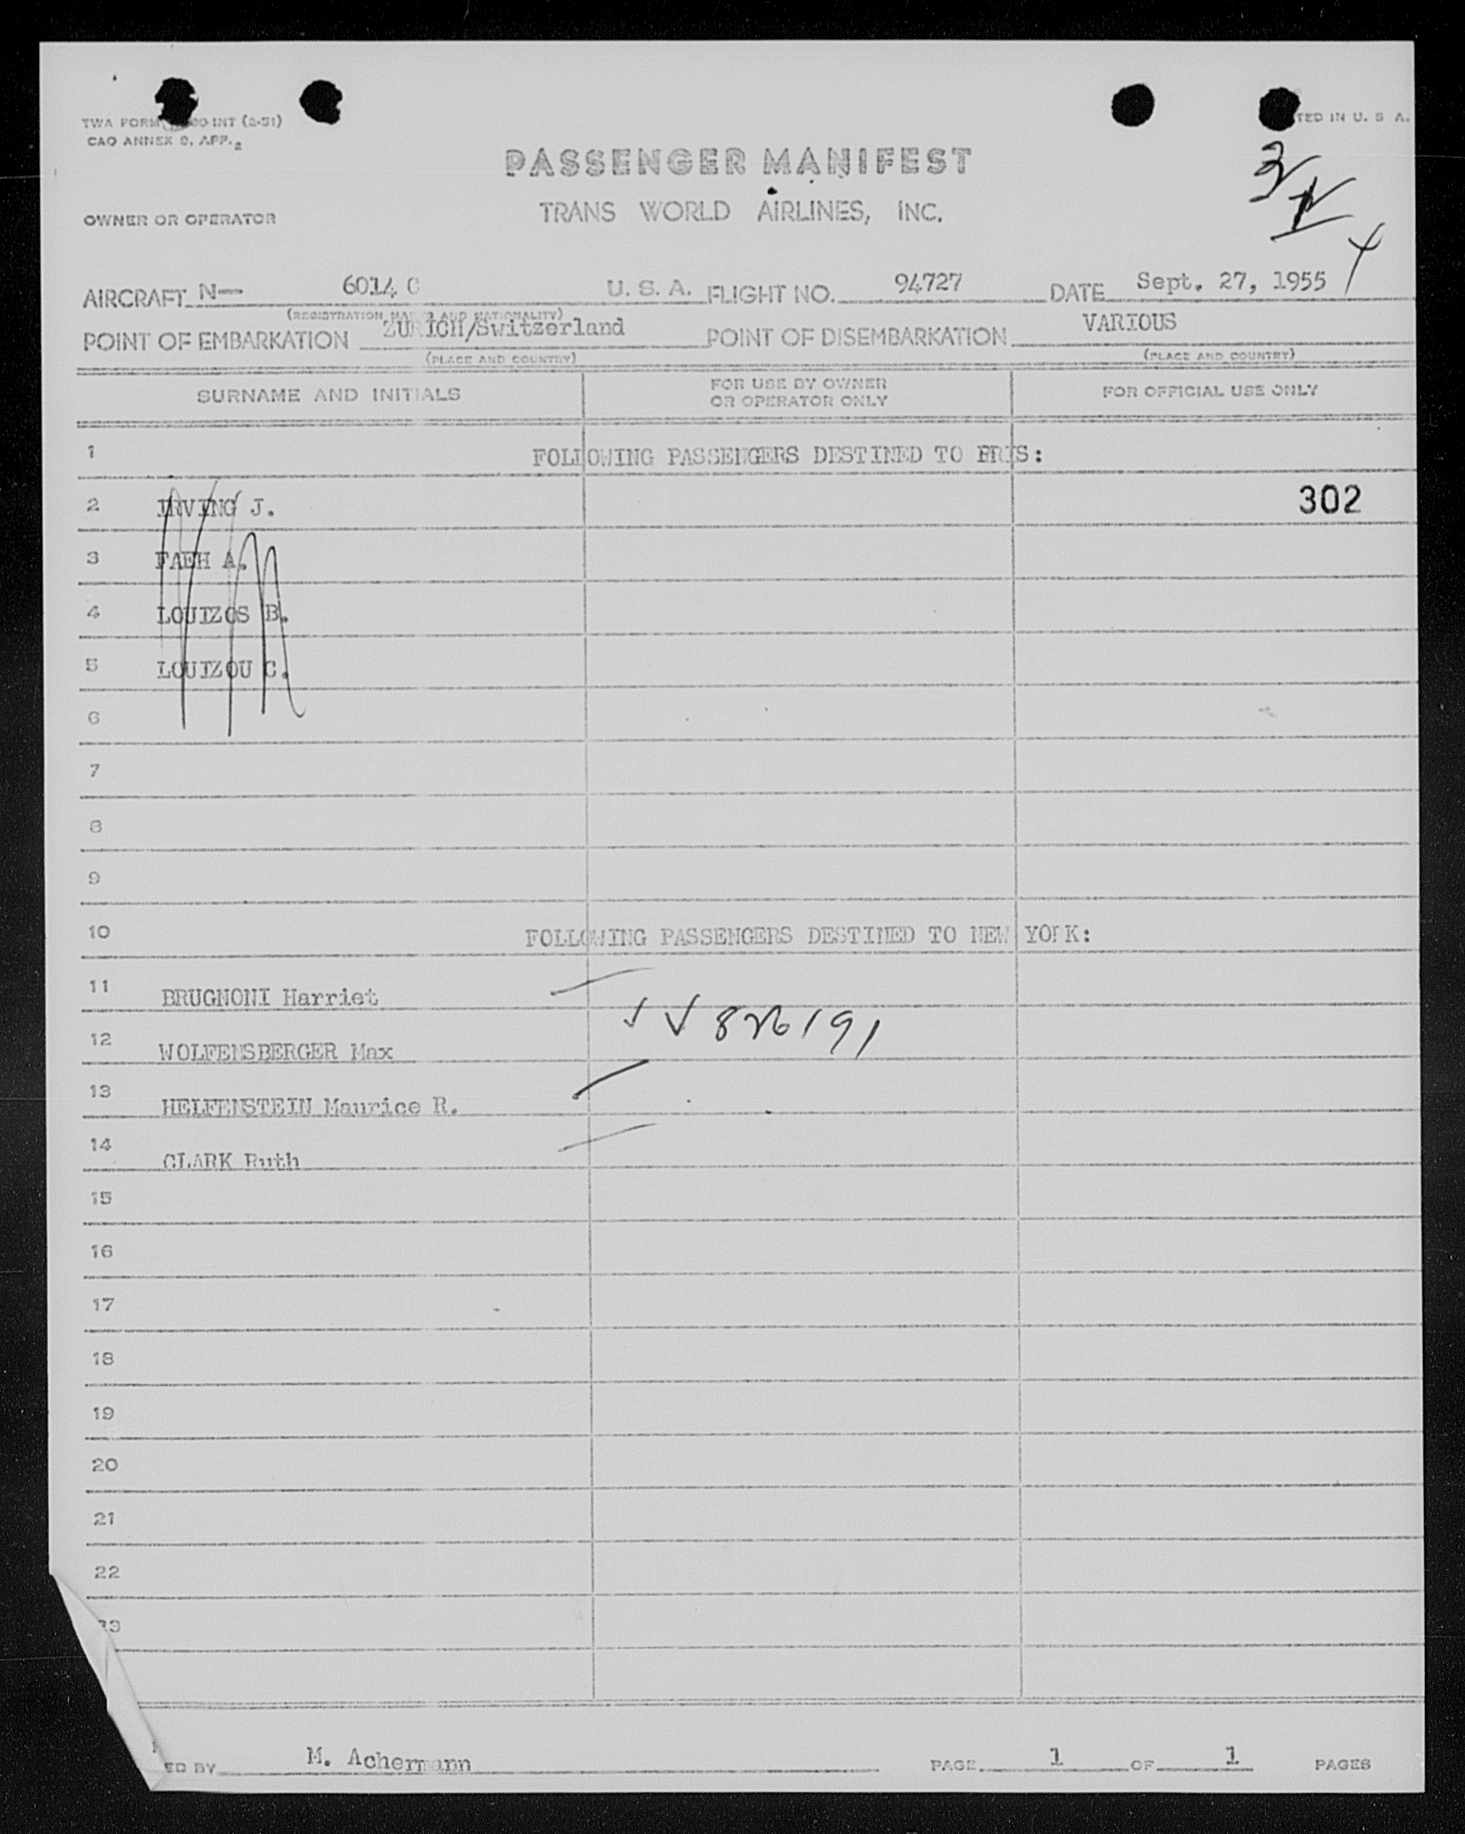 TWA FORM INT (2-51)
TED IN U. S A.
CAO ANNEX 9, APP. 2
PASSENGER MANIFEST
OWNER OR OPERATOR
TRANS WORLD AIRLINES, INC.
AIRCRAFT N— 6014 C U. S. A. FLIGHT NO. 94727 DATE Sept. 27, 1955
(REGISTRATION MARKS AND NATIONALITY)
POINT OF EMBARKATION ZURICH/Switzerland POINT OF DISEMBARKATION VARIOUS
(PLACE AND COUNTRY) (PLACE AND COUNTRY)
SURNAME AND INITIALS FOR USE BY OWNER OR OPERATOR ONLY FOR OFFICIAL USE ONLY
1 FOLLOWING PASSENGERS DESTINED TO :
2 IRVING J. 302
3 FAEH A.
4 LOUIZOS B.
5 LOUIZOU C.
6
7
8
9
10 FOLLOWING PASSENGERS DESTINED TO NEW YORK:
11 BRUGNONI Harriet
12 WOLFENSBERGER Max
13 HELFENSTEIN Maurice R.
14 CLARK Ruth
15
16
17
18
19
20
21
22
23
ED BY M. Achermann PAGE 1 OF 1 PAGES